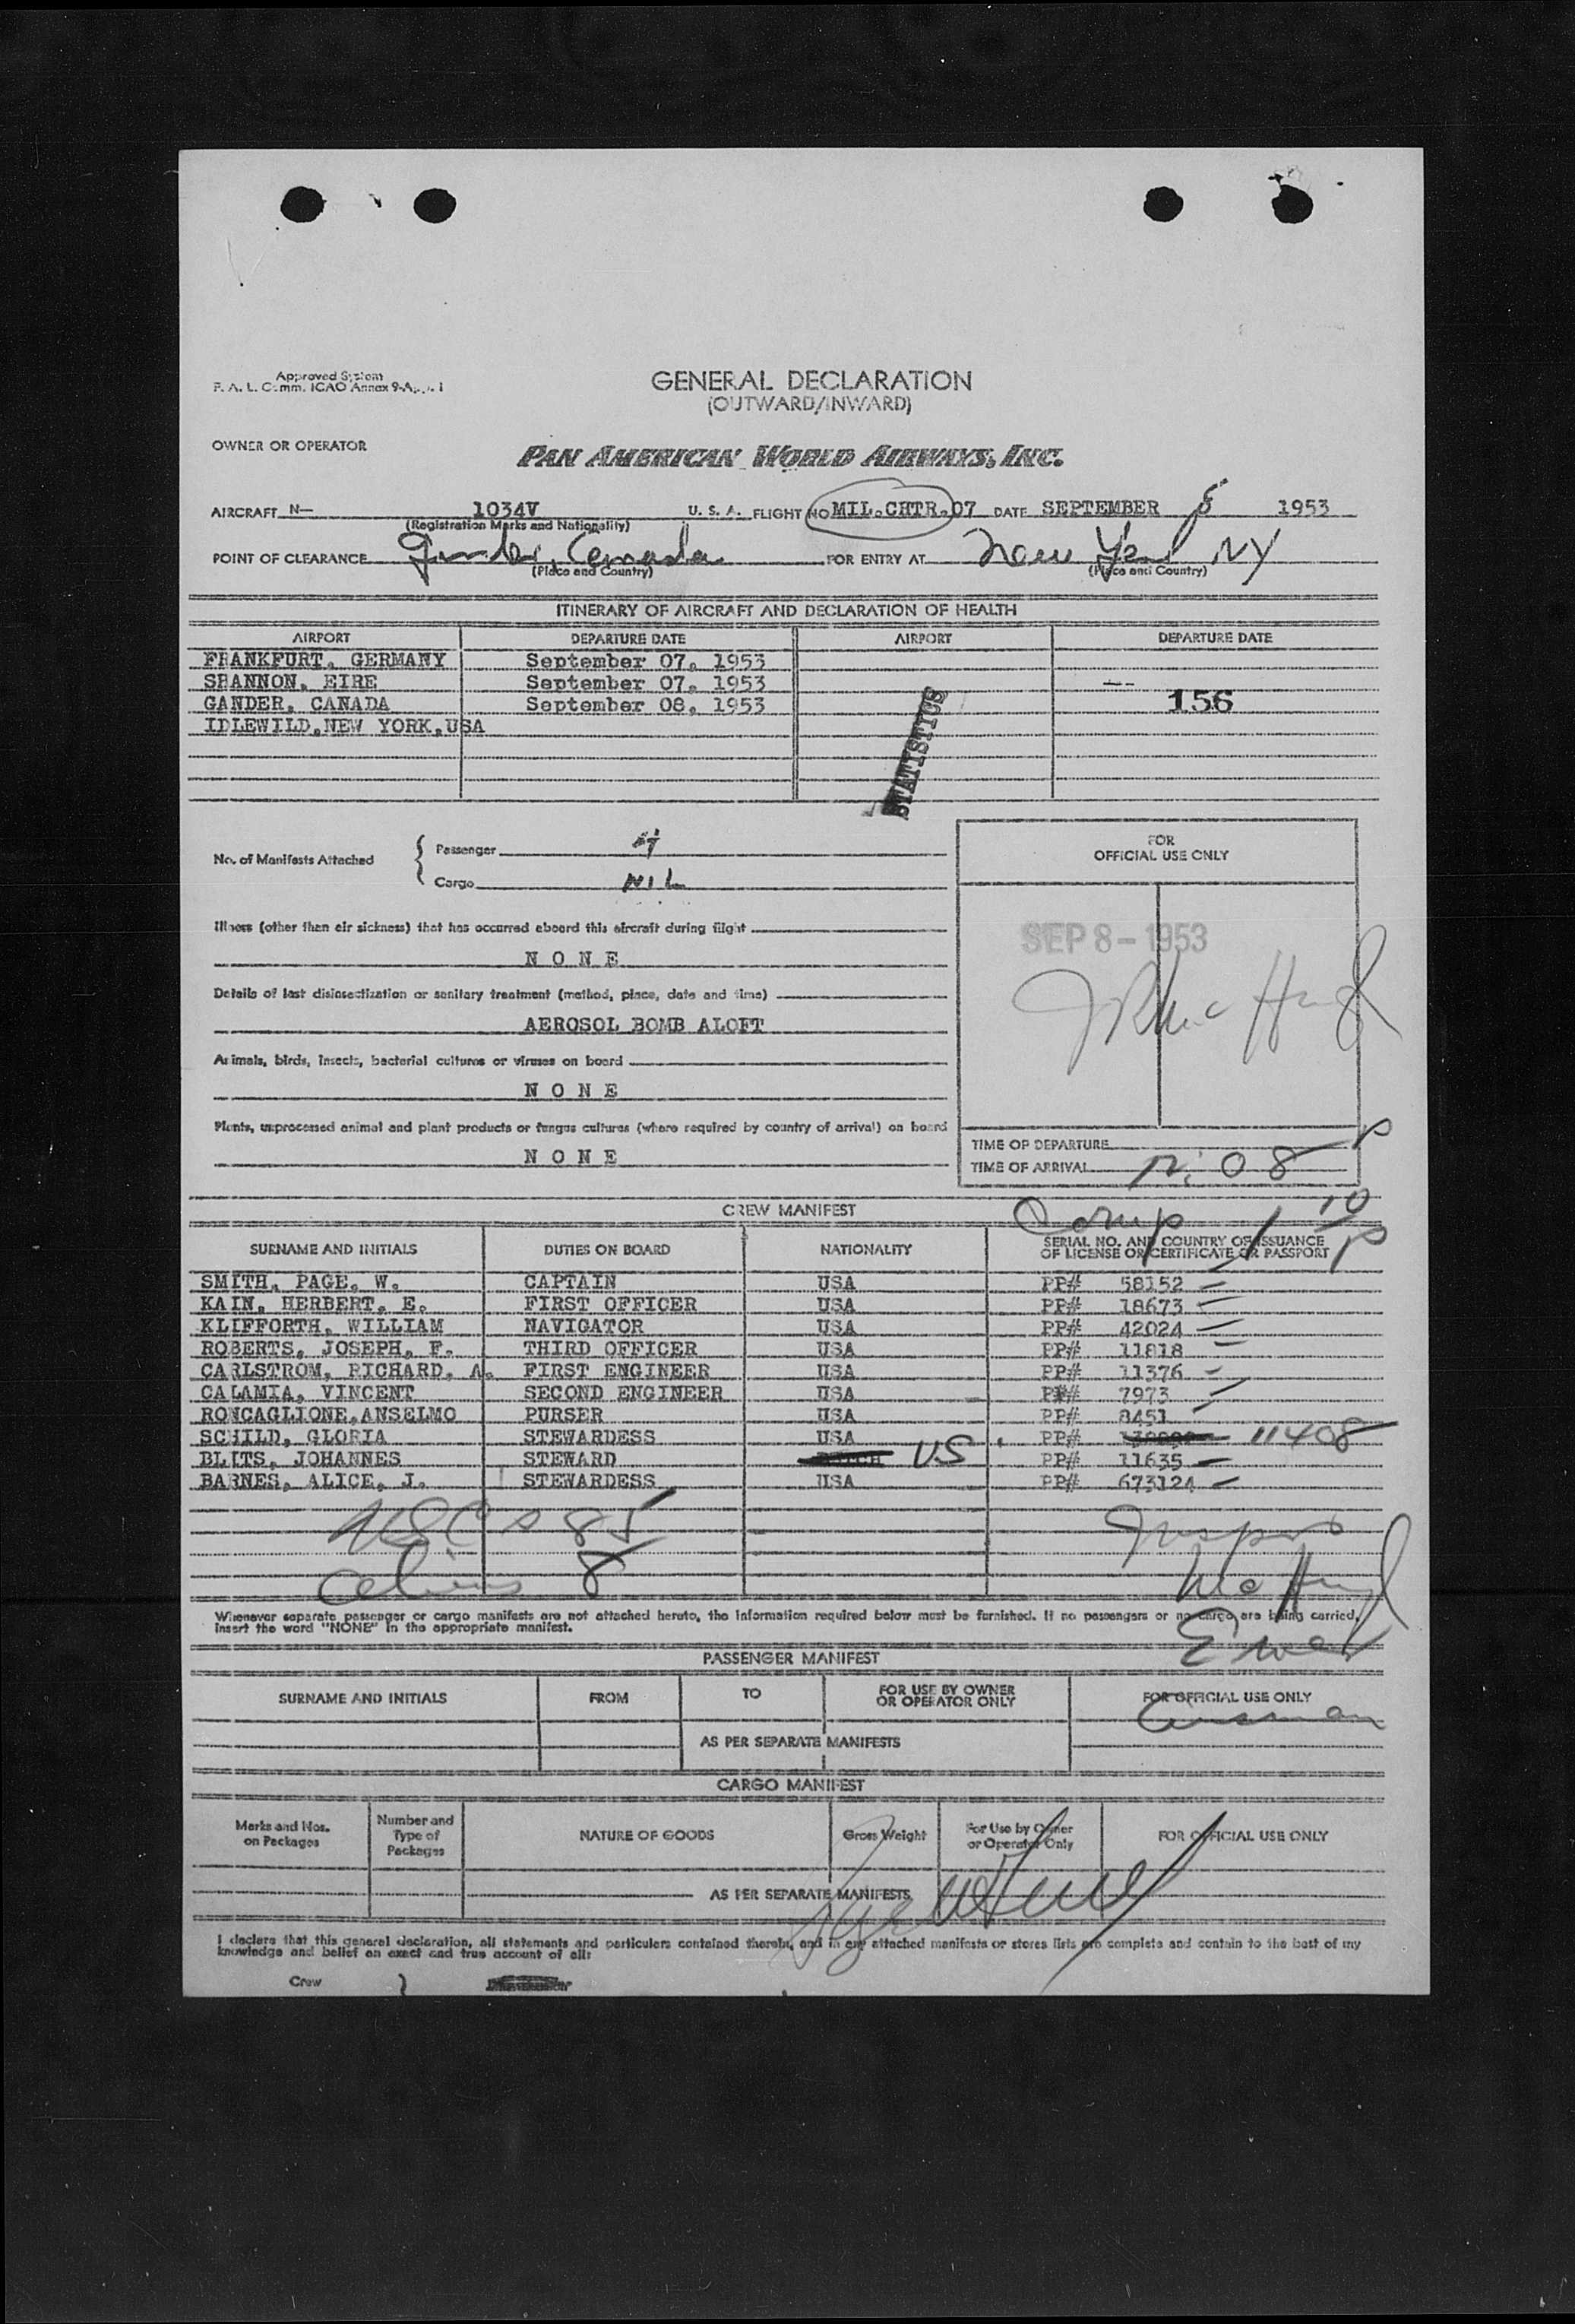 Approved System
F. A. L. Comm. ICAO Annex 9-App. 1
GENERAL DECLARATION
(OUTWARD/INWARD)
OWNER OR OPERATOR
PAN AMERICAN WORLD AIRWAYS, INC.
AIRCRAFT N— 1034V U. S. A. FLIGHT NO MIL.CHTR.07 DATE SEPTEMBER 8 1953
(Registration Marks and Nationality)
POINT OF CLEARANCE Gander, Canada FOR ENTRY AT New York NY
(Place and Country) (Place and Country)
ITINERARY OF AIRCRAFT AND DECLARATION OF HEALTH
AIRPORT DEPARTURE DATE AIRPORT DEPARTURE DATE
FRANKFURT, GERMANY September 07, 1953
SHANNON, EIRE September 07, 1953
GANDER, CANADA September 08, 1953 156
IDLEWILD,NEW YORK,USA
STATISTICS
No. of Manifests Attached
Passenger
Cargo NIL
FOR
OFFICIAL USE ONLY
Illness (other than air sickness) that has occurred aboard this aircraft during flight
SEP 8 - 1953
N O N E
Details of last disinsectization or sanitary treatment (method, place, date and time)
AEROSOL BOMB ALOFT
Animals, birds, insects, bacterial cultures or viruses on board
N O N E
Plants, unprocessed animal and plant products or fungus cultures (where required by country of arrival) on board
N O N E
TIME OF DEPARTURE
TIME OF ARRIVAL 12:08 P
CREW MANIFEST
Comp 1 10 P
SURNAME AND INITIALS DUTIES ON BOARD NATIONALITY SERIAL NO. AND COUNTRY OF ISSUANCE
OF LICENSE OR CERTIFICATE OR PASSPORT
SMITH, PAGE, W. CAPTAIN USA PP# 58152
KAIN, HERBERT, E. FIRST OFFICER USA PP# 18673
KLIFFORTH, WILLIAM NAVIGATOR USA PP# 42024
ROBERTS, JOSEPH, F. THIRD OFFICER USA PP# 11818
CARLSTROM, RICHARD, A. FIRST ENGINEER USA PP# 11376
CALAMIA, VINCENT SECOND ENGINEER USA PP# 7973
RONCAGLIONE,ANSELMO PURSER USA PP# 8451
SCHILD, GLORIA STEWARDESS USA PP# 11408
BLITS, JOHANNES STEWARD US PP# 11635
BARNES, ALICE, J. STEWARDESS USA PP# 673124
USC s 85
Aliens 8
Whenever separate passenger or cargo manifests are not attached hereto, the information required below must be furnished. If no passengers or no cargo are being carried,
insert the word "NONE" in the appropriate manifest.
PASSENGER MANIFEST
SURNAME AND INITIALS FROM TO FOR USE BY OWNER
OR OPERATOR ONLY FOR OFFICIAL USE ONLY
AS PER SEPARATE MANIFESTS
CARGO MANIFEST
Marks and Nos.
on Packages
Number and
Type of
Packages
NATURE OF GOODS Gross Weight
For Use by Owner
or Operator Only
FOR OFFICIAL USE ONLY
AS PER SEPARATE MANIFESTS
I declare that this general declaration, all statements and particulars contained therein, and in any attached manifests or stores lists are complete and contain to the best of my
knowledge and belief an exact and true account of all:
Crew